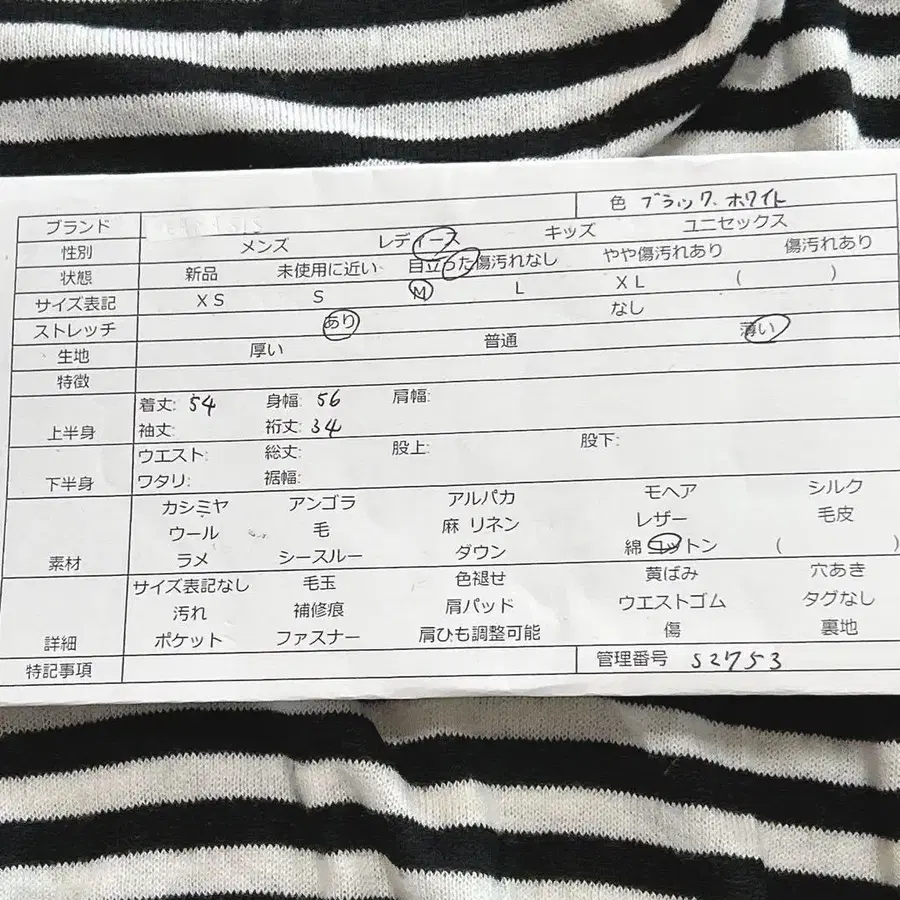 色 ブラック、ホワイト
ブランド
性別 メンズ レディース キッズ ユニセックス
状態 新品 未使用に近い 目立った傷汚れなし やや傷汚れあり 傷汚れあり
サイズ表記 XS S M L XL ( )
ストレッチ あり なし
生地 厚い 普通 薄い
特徴
上半身 着丈: 54 身幅: 56 肩幅:
袖丈: 裄丈: 34
下半身 ウエスト: 総丈: 股上: 股下:
ワタリ: 裾幅:
素材 カシミヤ アンゴラ アルパカ モヘア シルク
ウール 毛 麻 リネン レザー 毛皮
ラメ シースルー ダウン 綿 コットン ( )
詳細 サイズ表記なし 毛玉 色褪せ 黄ばみ 穴あき
汚れ 補修痕 肩パッド ウエストゴム タグなし
ポケット ファスナー 肩ひも調整可能 傷 裏地
特記事項 管理番号 S2753